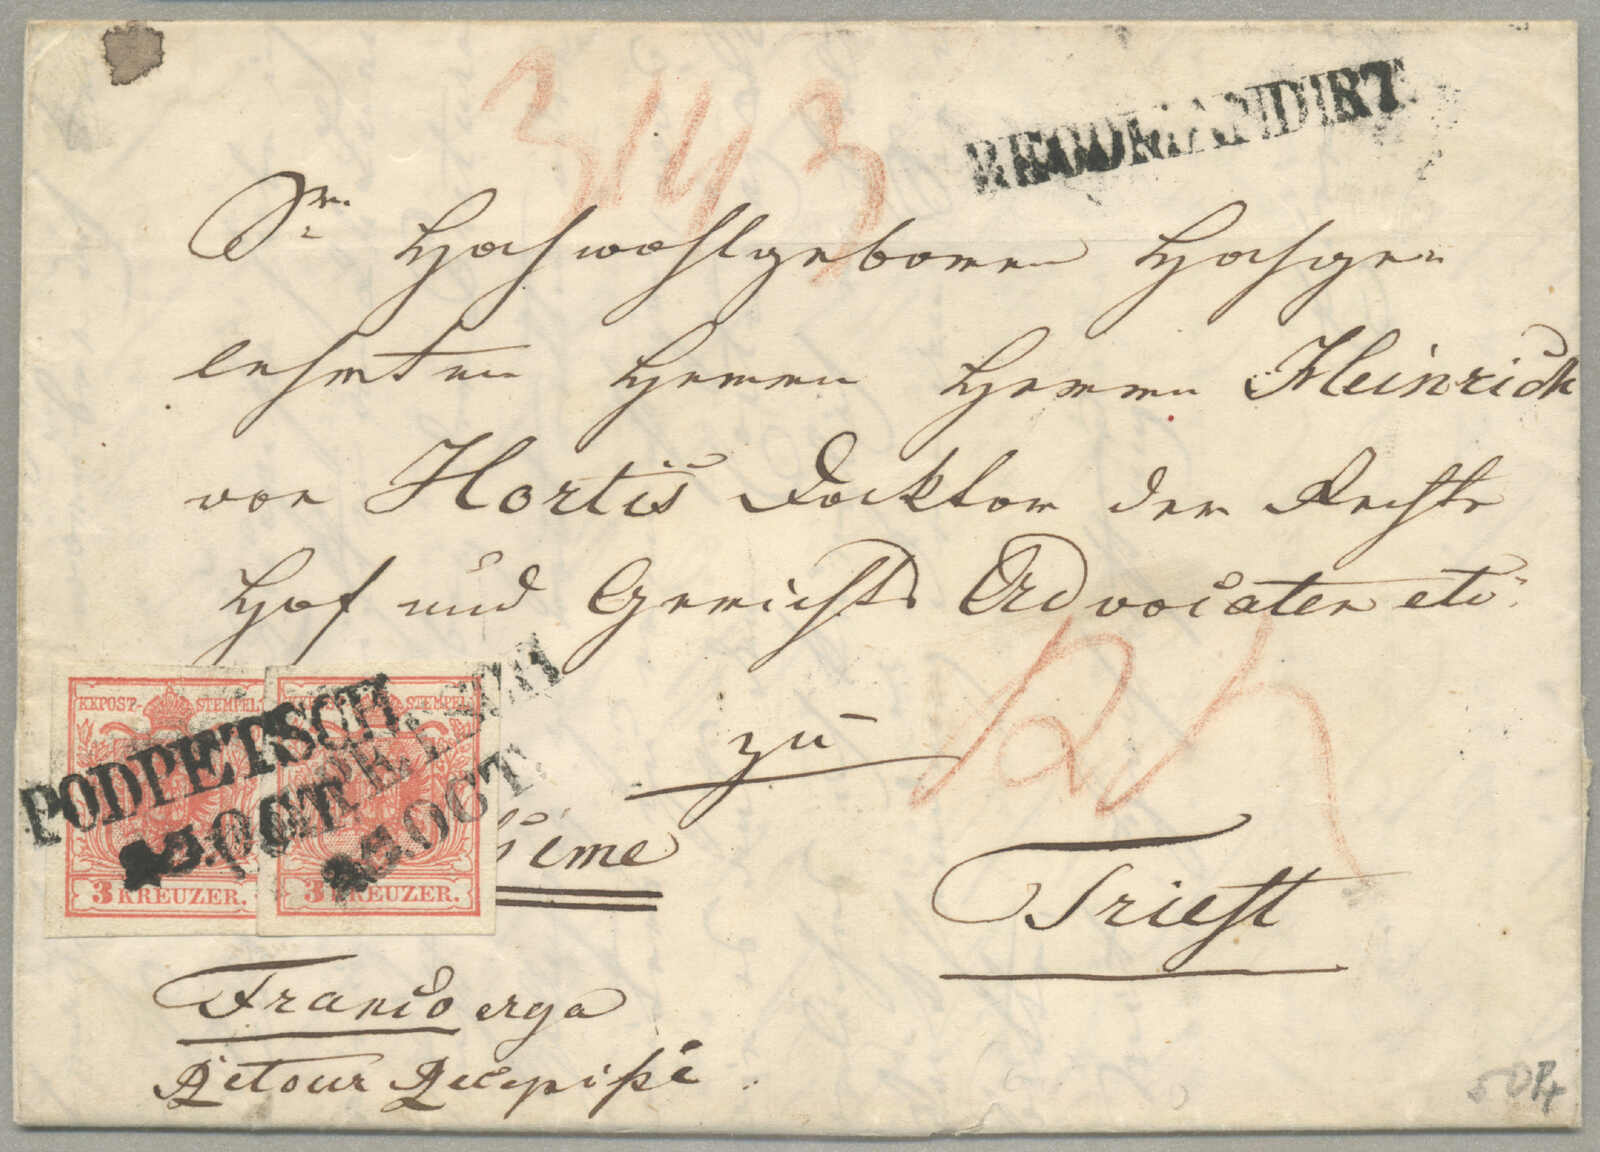 3143
RECOMANDIRT.
Sr Hochwohlgeboren Hochge
lehrten Herrn Herrn Heinrich
von Hortis Docktor der Rechte
Hof und Gerichts Advocaten etc:
zu
Triest
KKPOST-STEMPEL
3 KREUZER.
KKPOST-STEMPEL
3 KREUZER.
PODPETSCH.
OCT.
PODPETSCH
OCT.
Franco erga
Retour Recepisse